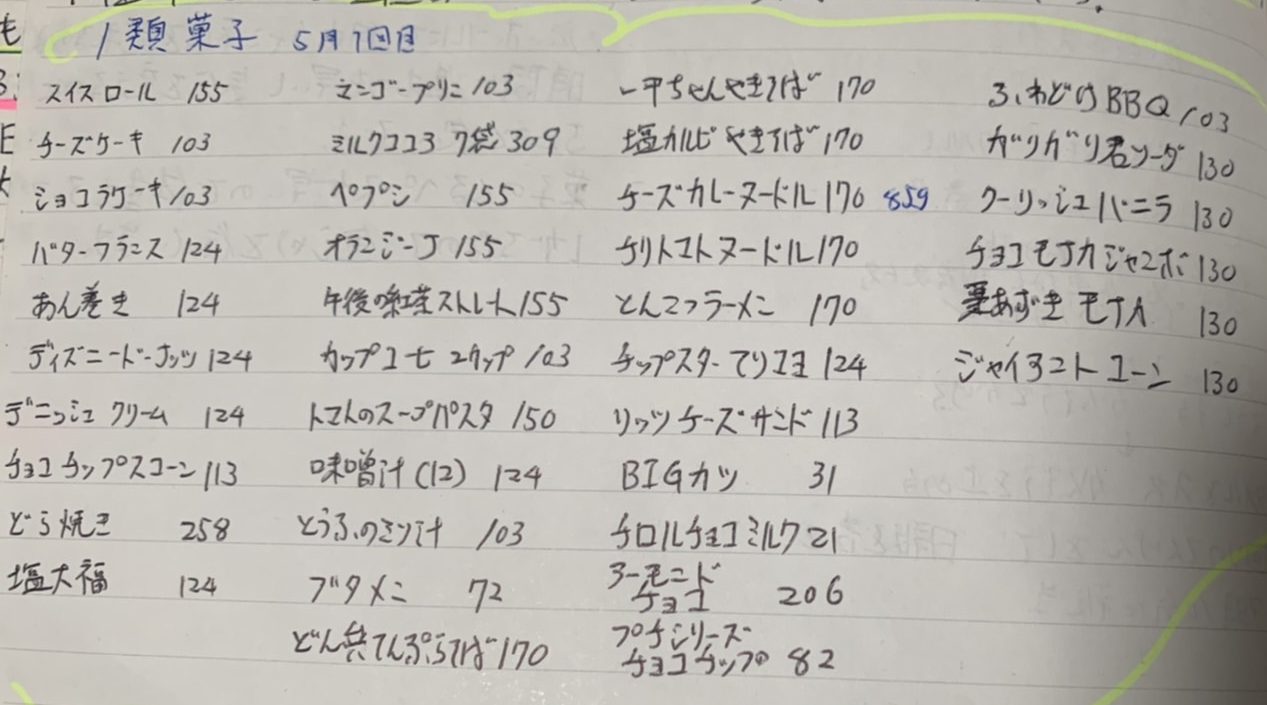 1類菓子 5月1回目
スイスロール 155
チーズケーキ 103
ショコラケーキ 103
バターフランス 124
あん巻き 124
ディズニードーナッツ 124
デニッシュクリーム 124
チョコチップスコーン 113
どら焼き 258
塩大福 124
マンゴープリン 103
ミルクココア 7袋 309
ペプシ 155
オランジーナ 155
午後の紅茶ストレート 155
カップコーヒー 2カップ 103
トマトのスープパスタ 150
味噌汁(12) 124
とうふのミソ汁 103
ブタメン 72
どん兵てんぷらそば 170
一平ちゃんやきそば 170
塩カルビやきそば 170
チーズカレーヌードル 170 859
チリトマトヌードル 170
とんこつラーメン 170
チップスターてりマヨ 124
リッツチーズサンド 113
BIGカツ 31
チロルチョコミルク 21
アーモンド
チョコ 206
プチシリーズ
チョコチップ 82
ふ、わどけBBQ 103
ガリガリ君ソーダ 130
クーリッシュバニラ 130
チョコモナカジャンボ 130
あずきモナカ 130
ジャイアントコーン 130